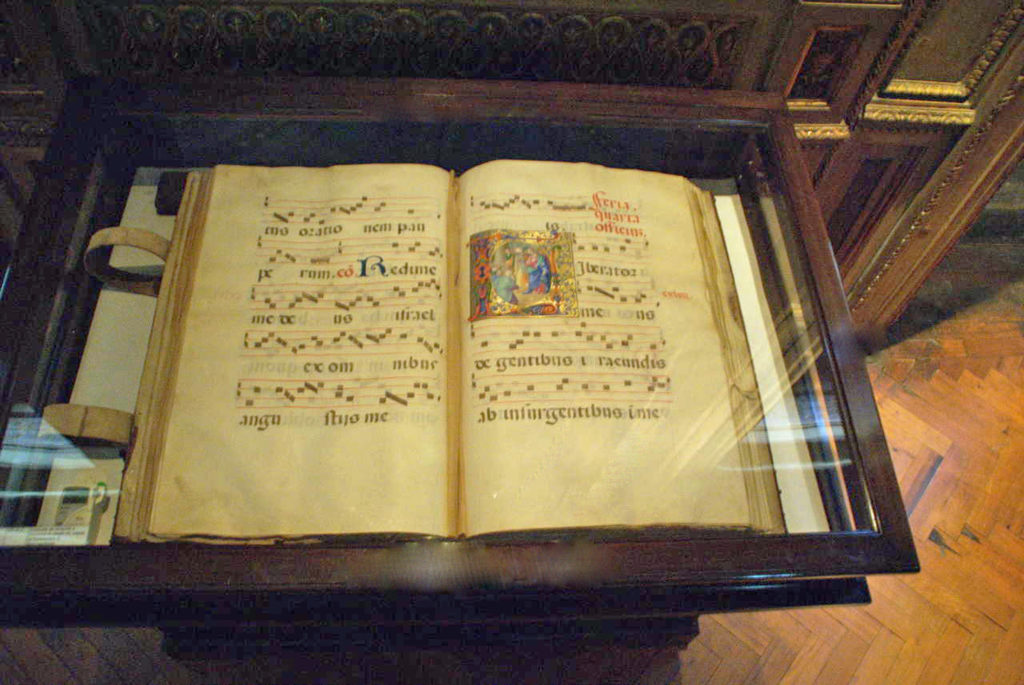 tus oratio nem pau
pe rum. cō Redime
me de us israel
ex om nibus
angu stijs me
feria
quarta
officium.
Iberator
me us
de gentibus i racundis
ab insurgentibus i me